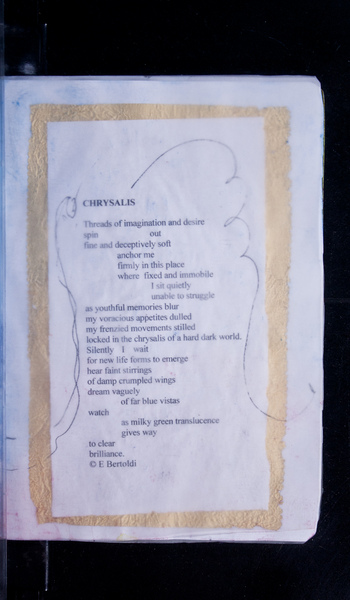 CHRYSALIS
Threads of imagination and desire
spin out
fine and deceptively soft
anchor me
firmly in this place
where fixed and immobile
I sit quietly
unable to struggle
as youthful memories blur
my voracious appetites dulled
my frenzied movements stilled
locked in the chrysalis of a hard dark world.
Silently I wait
for new life forms to emerge
hear faint stirrings
of damp crumpled wings
dream vaguely
of far blue vistas
watch
as milky green translucence
gives way
to clear
brilliance.
© E Bertoldi